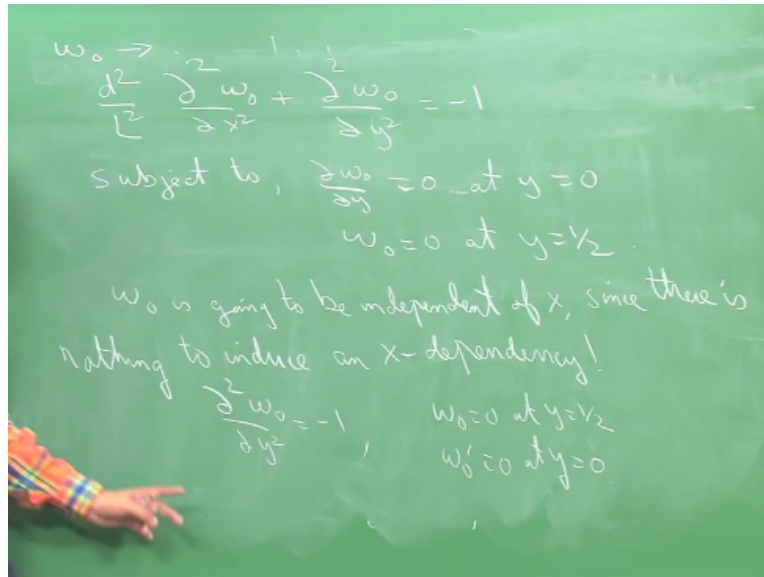 w₀ →
d²/L² ∂²w₀/∂x² + ∂²w₀/∂y² = -1
subject to, ∂w₀/∂y = 0 at y = 0
w₀ = 0 at y = 1/2.
w₀ is going to be independent of x, since there is
nothing to induce an x-dependency!
∂²w₀/∂y² = -1, w₀ = 0 at y = 1/2
w₀' = 0 at y = 0